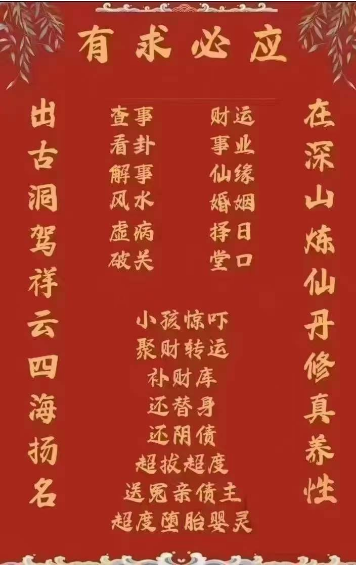 有求必应
在深山炼仙丹修真养性
出古洞驾祥云四海扬名
查事 财运
看卦 事业
解事 仙缘
风水 婚姻
虚病 择日
破关 堂口
小孩惊吓
聚财转运
补财库
还替身
还阴债
超拔超度
送冤亲债主
超度堕胎婴灵